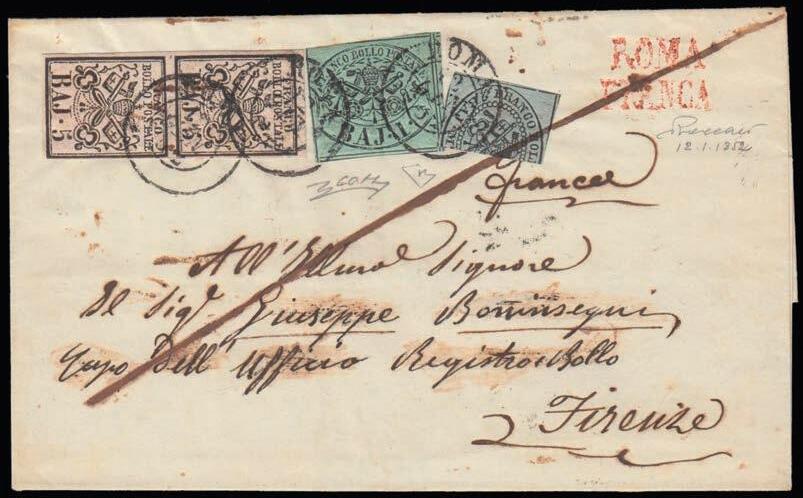 FRANCO
BOLLO POSTALE
BAJ · 5
FRANCO
BOLLO POSTALE
BAJ · 5
FRANCO BOLLO
BAJ. 1
FRANCO BOLLO
ROMA
FRANCA
12.1.1852
franca
All' Illmo Signore
Il Sigr Giuseppe Boninsegni
Capo dell' Ufficio Registro e Bollo
Firenze